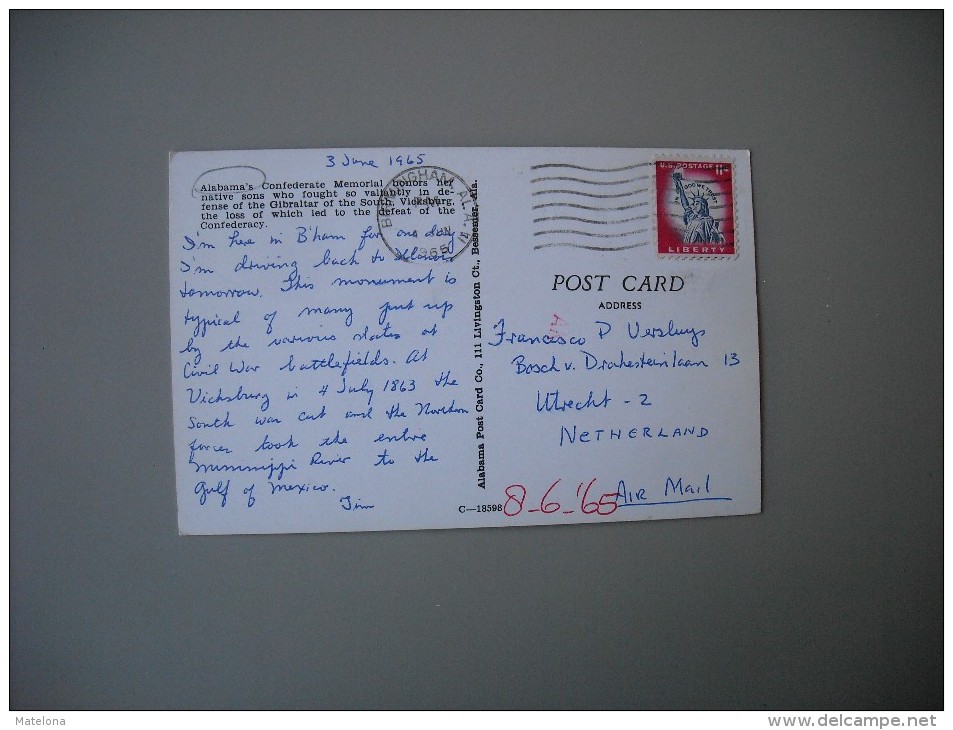 3 June 1965
Alabama's Confederate Memorial honors her
native sons who fought so valiantly in de-
fense of the Gibraltar of the South, Vicksburg,
the loss of which led to the defeat of the
Confederacy.
I'm here in B'ham for one day
I'm driving back to
tomorrow. This monument is
typical of many put up
by the various states at
Civil War battlefields. At
Vicksburg in 4 July 1863 the
South was cut and the Northern
forces took the entire
Mississippi River to the
Gulf of Mexico.
Jim
Alabama Post Card Co., 111 Livingston Ct., Bessemer, Ala.
C—18598
BIRMINGHAM, ALA.
1965
U.S. POSTAGE 11¢
IN GOD WE TRUST
LIBERTY
POST CARD
ADDRESS
Francisco P Versluys
Bosch v. Drakesteinlaan 13
Utrecht - 2
NETHERLAND
8-6-'65
AIR MAIL
Matelona
http://www.delcampe.net